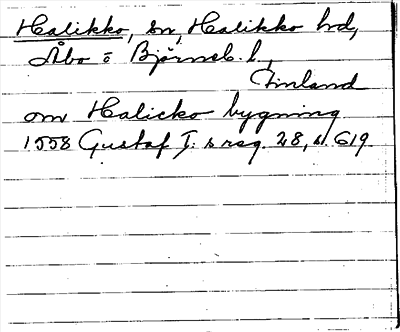 Halikko, sn, Halikko hd,
Åbo o Björneb. l,
Finland
om Halicko bygning
1558 Gustaf I: s reg. 28, s. 619.